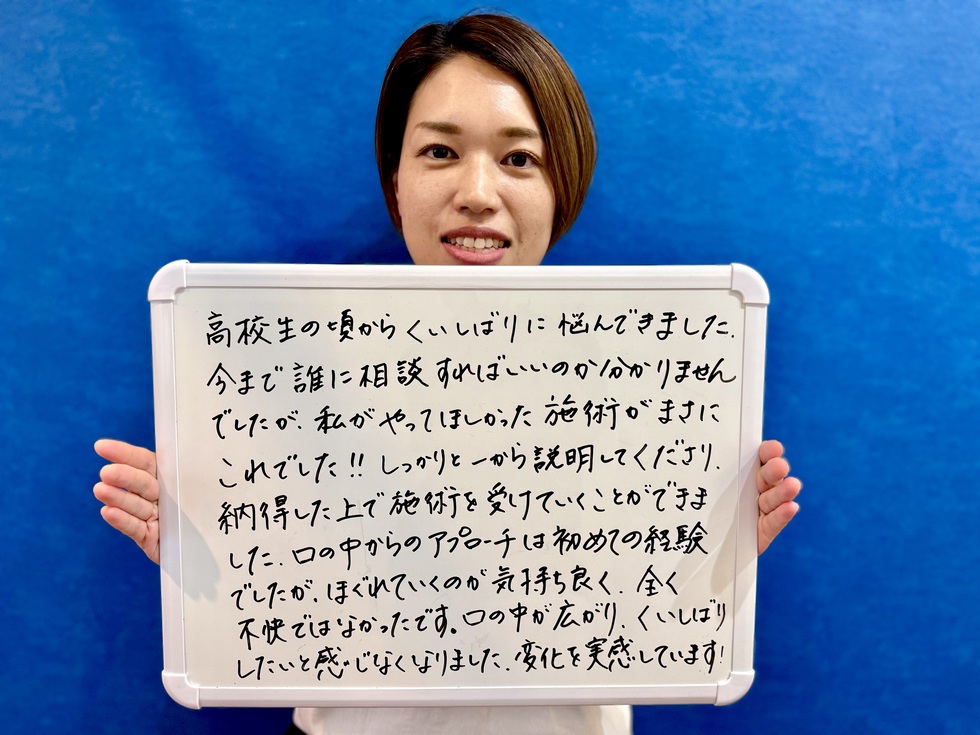 高校生の頃からくいしばりに悩んできました.
今まで誰に相談すればいいのか分かりません
でしたが、私がやってほしかった施術がまさに
これでした!! しっかりと一から説明してくださり、
納得した上で施術を受けていくことができま
した。口の中からのアプローチは初めての経験
でしたが、ほぐれていくのが気持ち良く、全く
不快ではなかったです。口の中が広がり、くいしばり
したいと感じなくなりました。変化を実感しています!